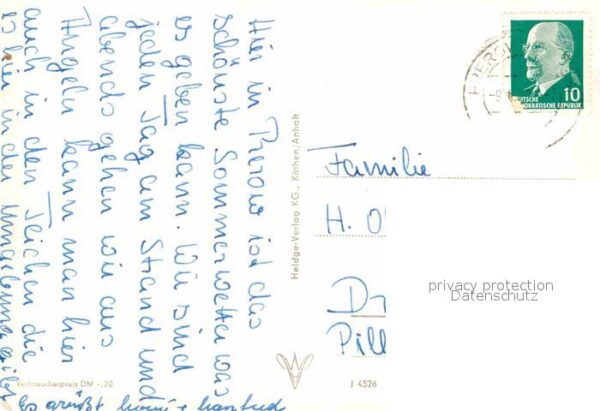 Hier in Prerow ist das
schönste Sommerwetter was
es geben kann. Wir sind
jeden Tag am Strand und
abends gehen wir aus
Angeln kann man hier
auch in den Teichen die
es hier in der Umgebung gibt
Es grüßt
Heldge-Verlag KG., Köthen/Anhalt
Verbraucherpreis DM -.20
J 4526
DEUTSCHE
DEMOKRATISCHE REPUBLIK
10
Familie
H. O
Dr
Pill
privacy protection
Datenschutz